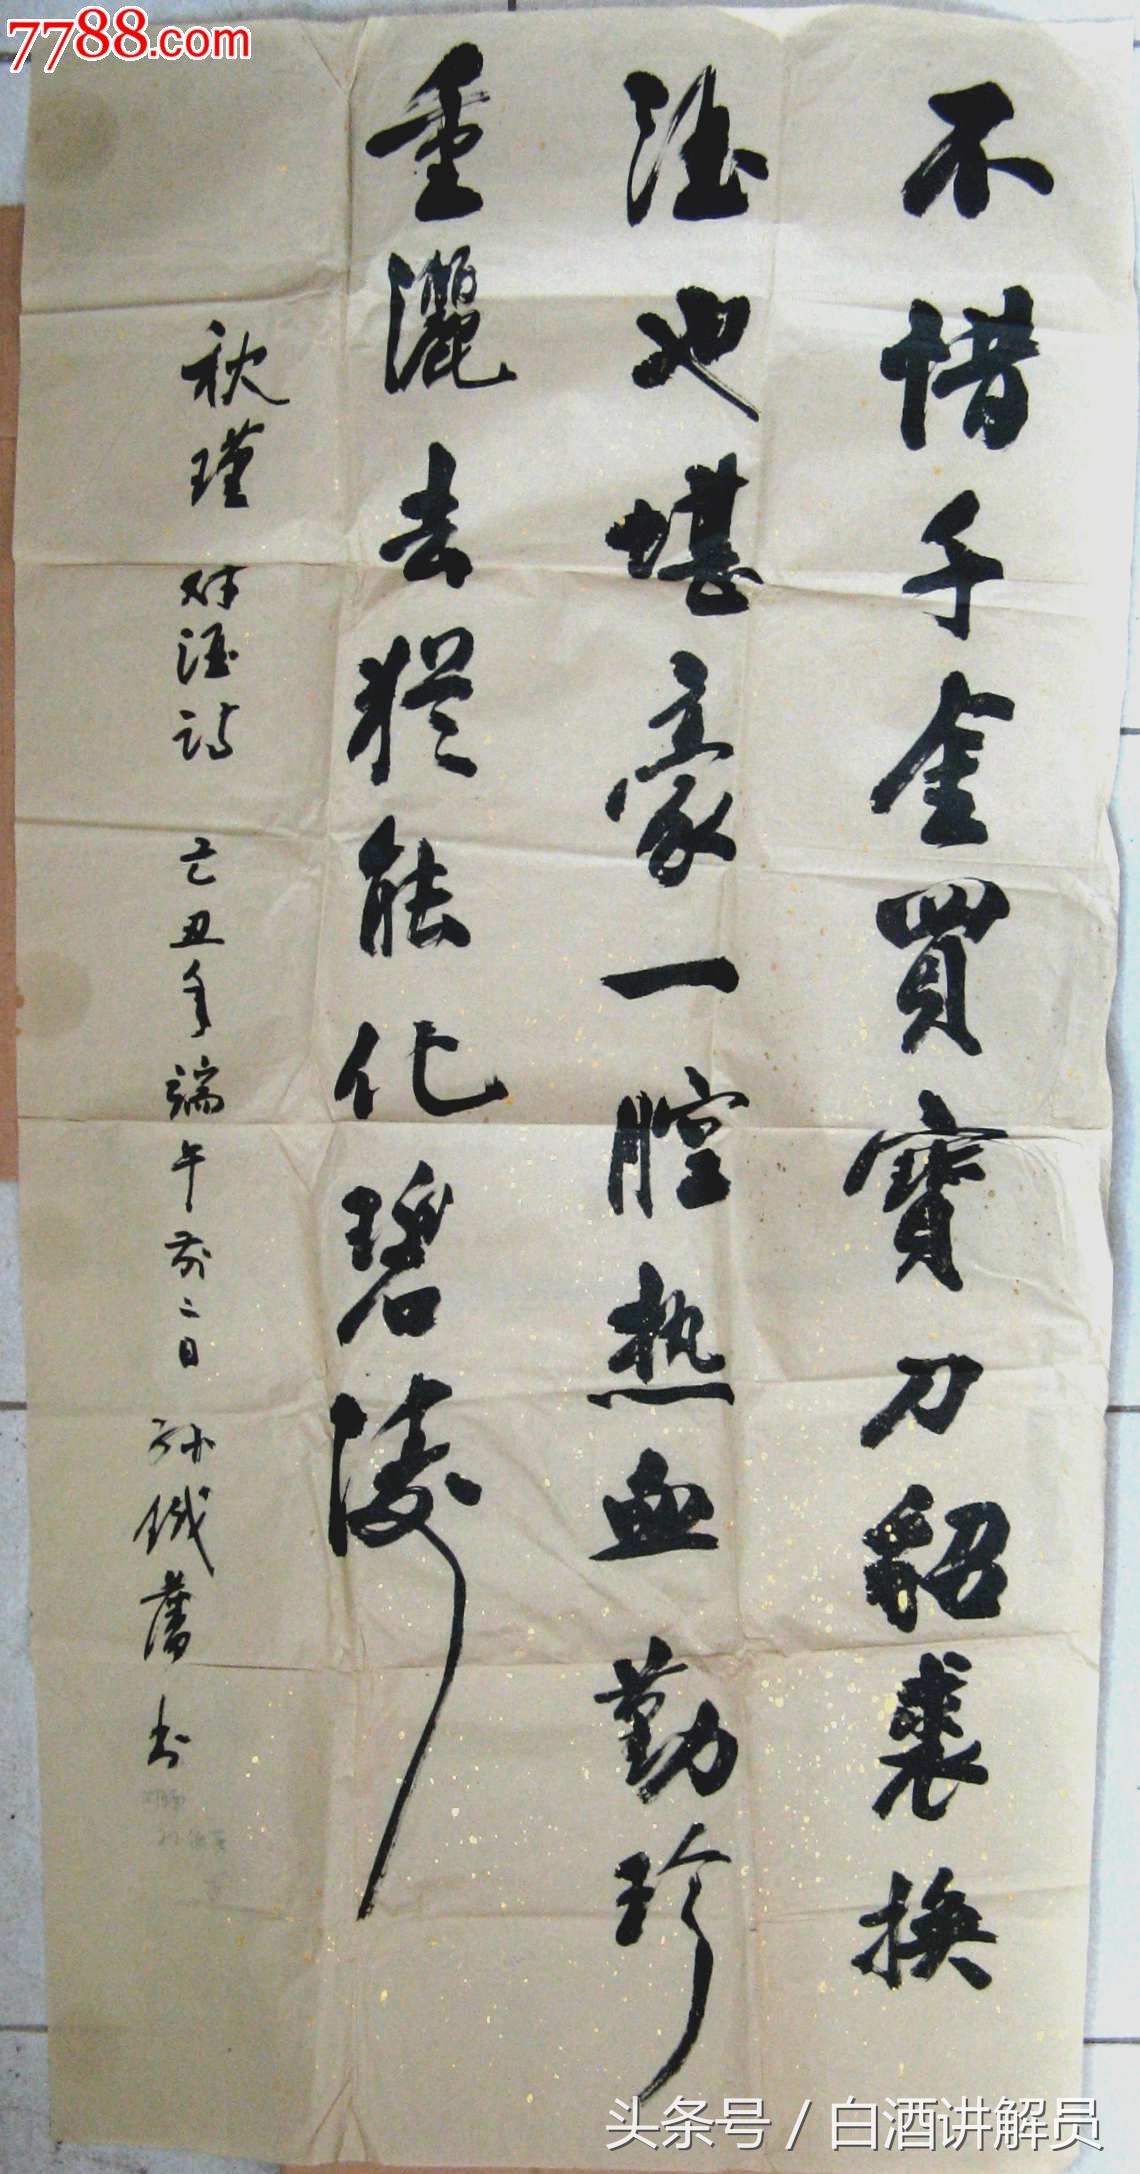 7788.com
不惜千金買寶刀貂裘換
酒也堪豪一腔热血勤珍
重灑去猶能化碧涛
秋瑾 对酒诗 己丑年端午前二日 孙鐵蕃书
头条号 / 白酒讲解员